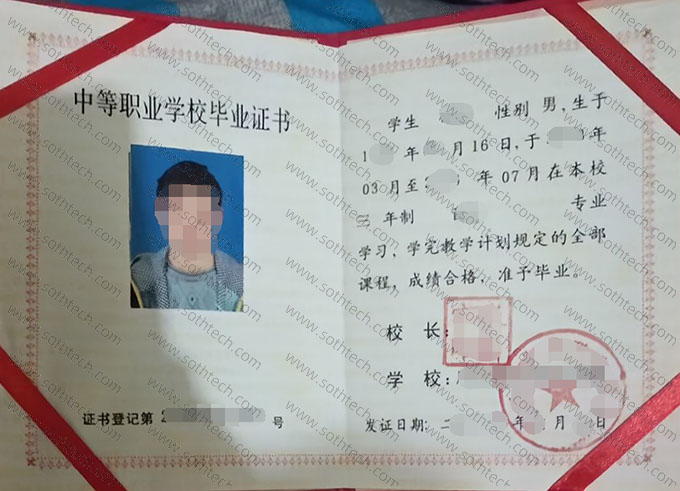 中等职业学校毕业证书
证书登记第 2 号
学生 性别 男,生于
1 年 月 16 日,于 年
03 月至 年 07 月在本校
三 年制 专业
学习,学完教学计划规定的全部
课程,成绩合格,准予毕业。
校 长:
学 校:
发证日期: 二 年 月 日
www.sothtech.com